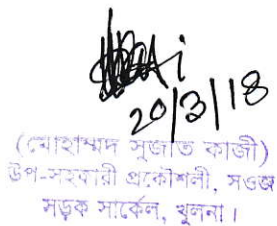 20/3/18
(মোহাম্মদ সুজাত কাজী)
উপ-সহকারী প্রকৌশলী, সওজ
সড়ক সার্কেল, খুলনা।